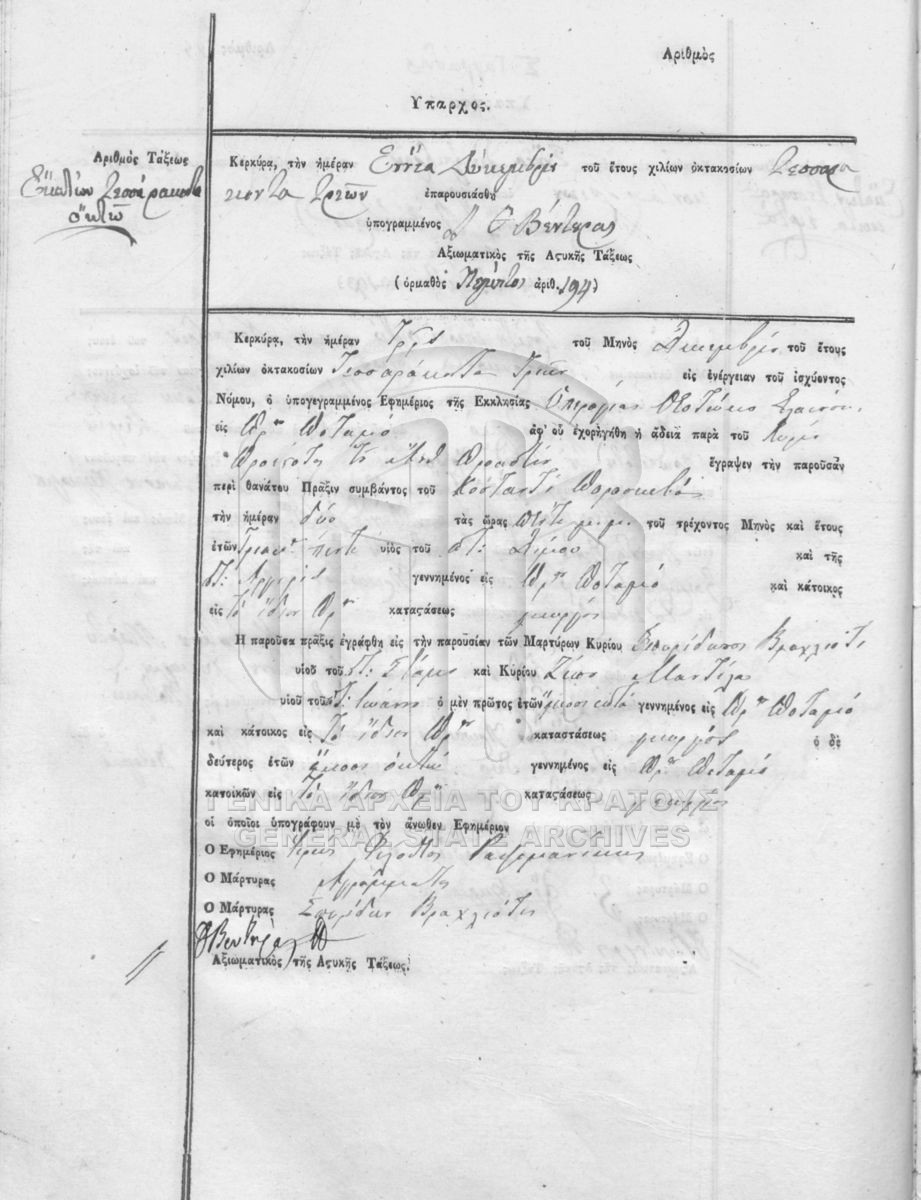 Ἀριθμὸς
Ὕπαρχος.
Ἀριθμὸς Τάξεως
Ἑκατὸν τεσσεράκοντα
ὀκτὼ
Κερκύρα, τὴν ἡμέραν Ἐννέα Δεκεμβρίου τοῦ ἔτους χιλίων ὀκτακοσίων τεσσαρα
κοντα τριῶν ἐπαρουσιάσθη
ὑπογραμμένος Βέντερας
Ἀξιωματικὸς τῆς Ἀστυκῆς Τάξεως
(ὁρμαθὸς Πέμπτος ἀριθ. 194)
Κερκύρα, τὴν ἡμέραν τρεῖς τοῦ Μηνὸς Δεκεμβρίου τοῦ ἔτους
χιλίων ὀκτακοσίων τεσσαράκοντα τριῶν εἰς ἐνέργειαν τοῦ ἰσχύοντος
Νόμου, ὁ ὑπογεγραμμένος Ἐφημέριος τῆς Ἐκκλησίας Ὑπεραγίας Θεοτόκου
εἰς Ποταμὸ ἀφ' οὗ ἐχορηγήθη ἡ ἄδεια παρὰ τοῦ Κυρίου
ἔγραψεν τὴν παροῦσαν
περὶ θανάτου Πρᾶξιν συμβάντος τοῦ Κόσταντὶ Παρασκευᾶ
τὴν ἡμέραν δύο τὰς ὥρας πέντε μ.μ. τοῦ τρέχοντος Μηνὸς καὶ ἔτους
ἐτῶν πέντε υἱὸς τοῦ ποτ: Δήμου καὶ τῆς
ποτ: γεννημένος εἰς Ποταμὸ καὶ κάτοικος
εἰς τὸ ἴδιον κατασάσεως γεωργὸς
Ἡ παροῦσα πρᾶξις ἐγράφθη εἰς τὴν παρουσίαν τῶν Μαρτύρων Κυρίου Σπυρίδωνος Βραχλιότι
υἱοῦ τοῦ ποτ: Στάμου καὶ Κυρίου Ζώη Μαντίλα
υἱοῦ τοῦ ποτ: Ἰωάννη ὁ μὲν πρῶτος ἐτῶν γεννημένος εἰς Ποταμὸ
καὶ κάτοικος εἰς τὸ ἴδιον καταστάσεως γεωργὸς ὁ δὲ
δεύτερος ἐτῶν ἴκοσι ὀκτὼ γεννημένος εἰς Ποταμὸ
κατοικῶν εἰς τὸ ἴδιον καταςάσεως γεωργὸς
οἱ ὁποῖοι ὑπογράφουν μὲ τὸν ἄνωθεν Ἐφημέριον
Ὁ Ἐφημέριος Ἱερεὺς
Ὁ Μάρτυρας Ἀγράμματος
Ὁ Μάρτυρας Σπυρίδων Βραχλιότις
Ἀξιωματικὸς τῆς Ἀστυκῆς Τάξεως.
ΓΕΝΙΚΑ ΑΡΧΕΙΑ ΤΟΥ ΚΡΑΤΟΥΣ
GENERAL STATE ARCHIVES